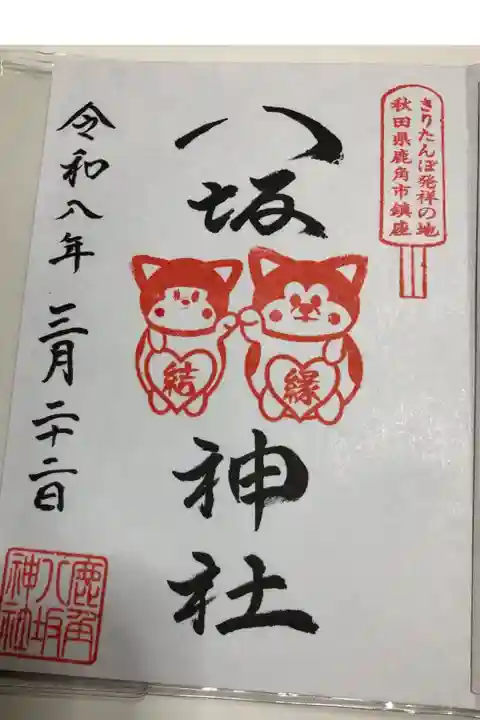 きりたんぽ発祥の地
秋田県鹿角市鎮座
八坂神社
縁
結
令和八年 三月二十二日
鹿角
八坂
神社